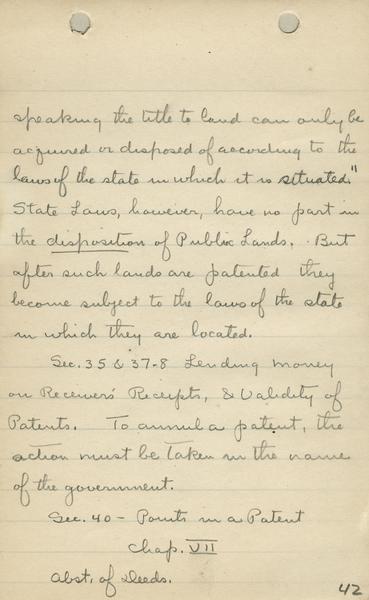 speaking the title to land can only be
acquired or disposed of according to the
laws of the state in which it is situated."
State Laws, however, have no part in
the disposition of Public Lands. But
after such lands are patented they
become subject to the laws of the state
in which they are located.
Sec. 35 & 37-8 Lending money
on Receivers' Receipts, & Validity of
Patents. To annul a patent, the
action must be taken in the name
of the government.
Sec. 40 - Points in a Patent
Chap. VII
Abst. of Deeds.
42